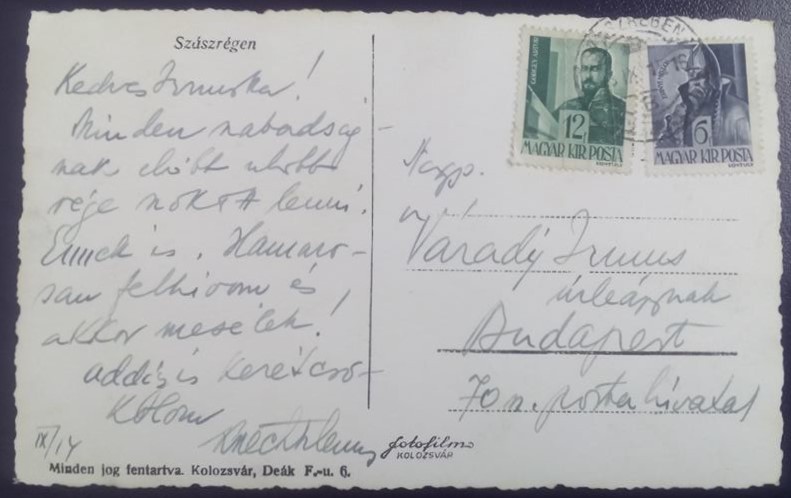 Szászrégen
Kedves Irmuska!
Minden szabadság-
nak előbb utóbb
vége szokott lenni.
Ennek is. Hamaro-
san felhívom és
akkor mesélek!
Addig is kezét csó-
kolom
IX/14
Minden jog fentartva. Kolozsvár, Deák F.-u. 6.
fotofilm
KOLOZSVÁR
GÖRGEY ARTUR
12f
MAGYAR KIR POSTA
6f
MAGYAR KIR POSTA
Nagys.
Várady Irmus
úrleánynak
Budapest
70 sz. postahivatal